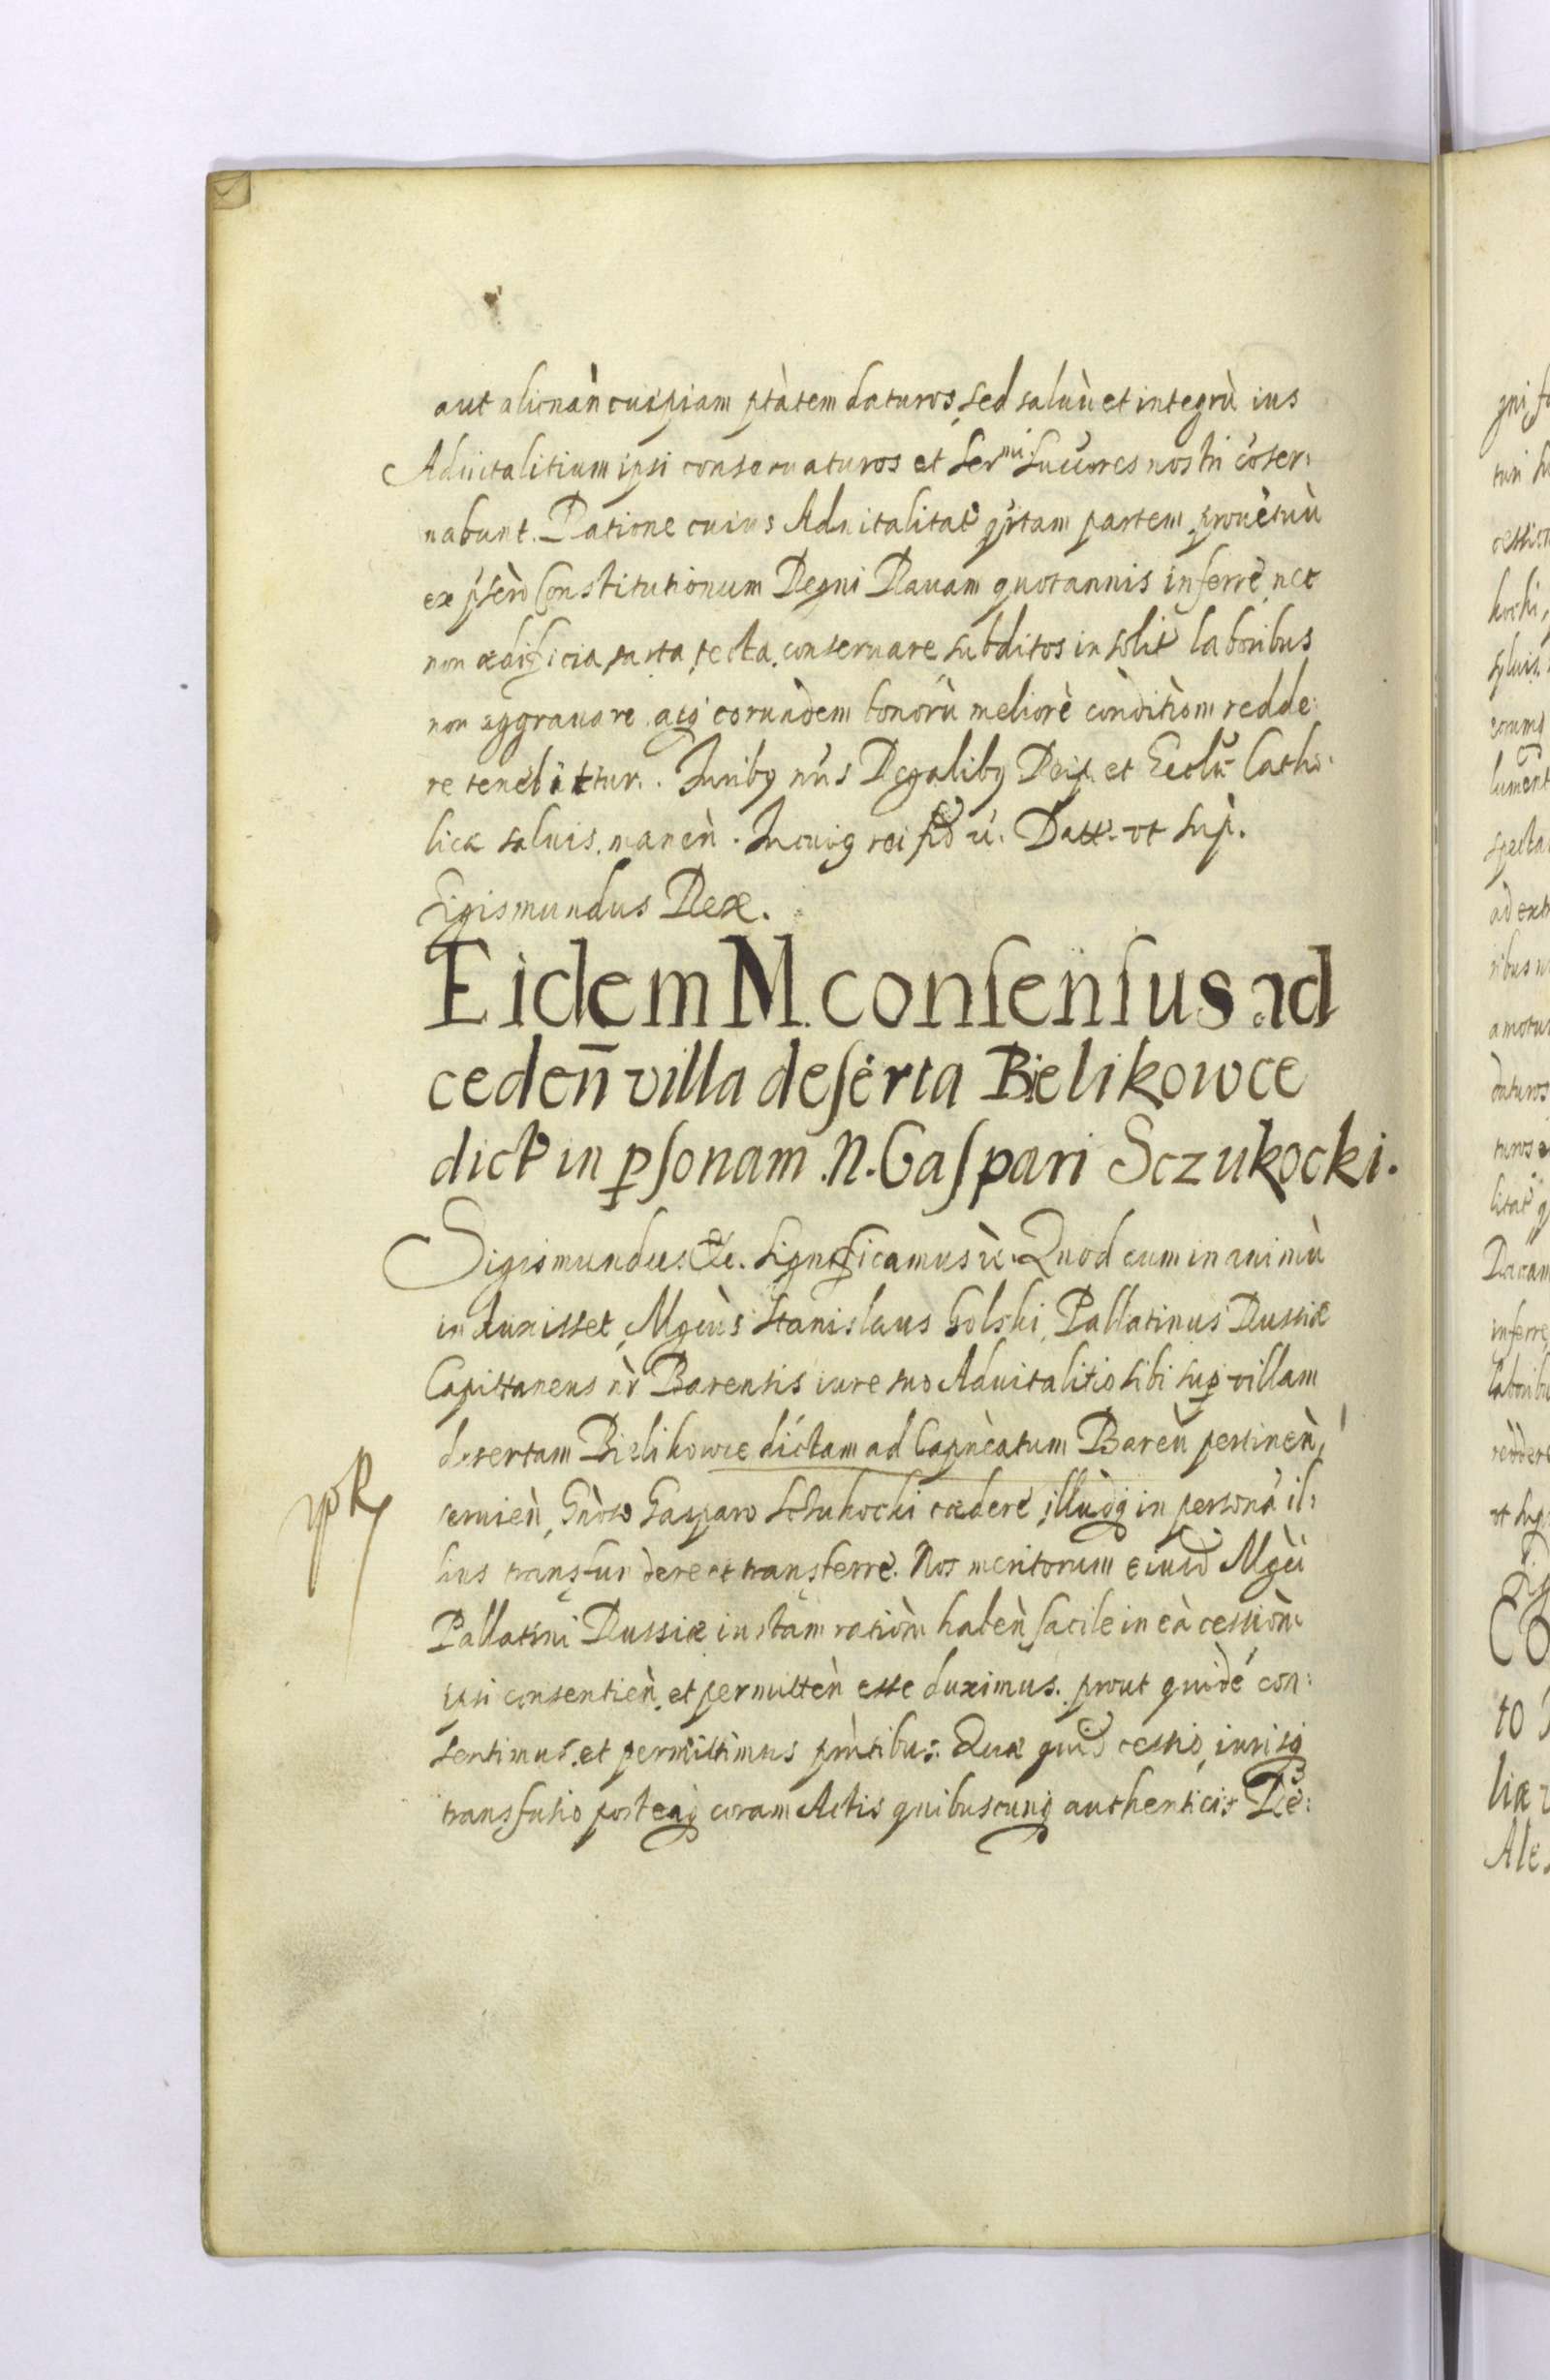 aut alienan̄ cuipiam ptàtem daturos, sed saluù et integrù ius
Aduitalitium ipsi conseruaturos et Ser^mi Succ̄ores nostri cōser:
uabunt. Ratione cuius Aduitalitat̄ q̄rtam partem prouētuù
ex p̄scr̄o Constitutionum Regni Rauam quotannis inferre, nec
non ædificia, sarta, tecta, conseruare, subditos insolit̄ laboribus
non aggrauare, acq̀ eorundem bonorù meliorè conditiòm redde:
re tenebittur. Iuribq nr̄is Regalibq Reip. et Ecclǣ Catho:
licæ saluis, manen̄. In cuiq rei fid̄ &c. Datt. vt sup.
Sigismundus Rex.
Eidem M. consensus ad
ceden̄ villa deserta Bielikowce
dict̄ in p̱sonam N. Gaspari Sczukocki.
Sigismundus &c. Significamus &c. Quod cum in animù
induxisset, Mgcùs Stanislaus Golski, Pallatinus Russiæ
Capittaneus nr̄ Barensis iure suo Aduitalitio sibi sup̱ villam
desertam Bielikowce dictam ad Capn̄eatum Baren̄ pertinen̄,
seruien̄, Gnòso Gasparo Sczukocki cædere, illudq̀ in personā il:
lius transfundere et transferre. Nos meritorum eiusd̄ Mgcì
Pallatini Russiæ iustam ratiònem haben̄ facile in eà cessiòne
ipsi consentien̄, et permitten̄ esse duximus. prout quidē con:
sentimus, et permittimus pn̄tibus. Quæ quid̄ cessio, iurisq̀
transfusio posteaq̀ coram Actis quibuscunq̀ authenticis Rē: